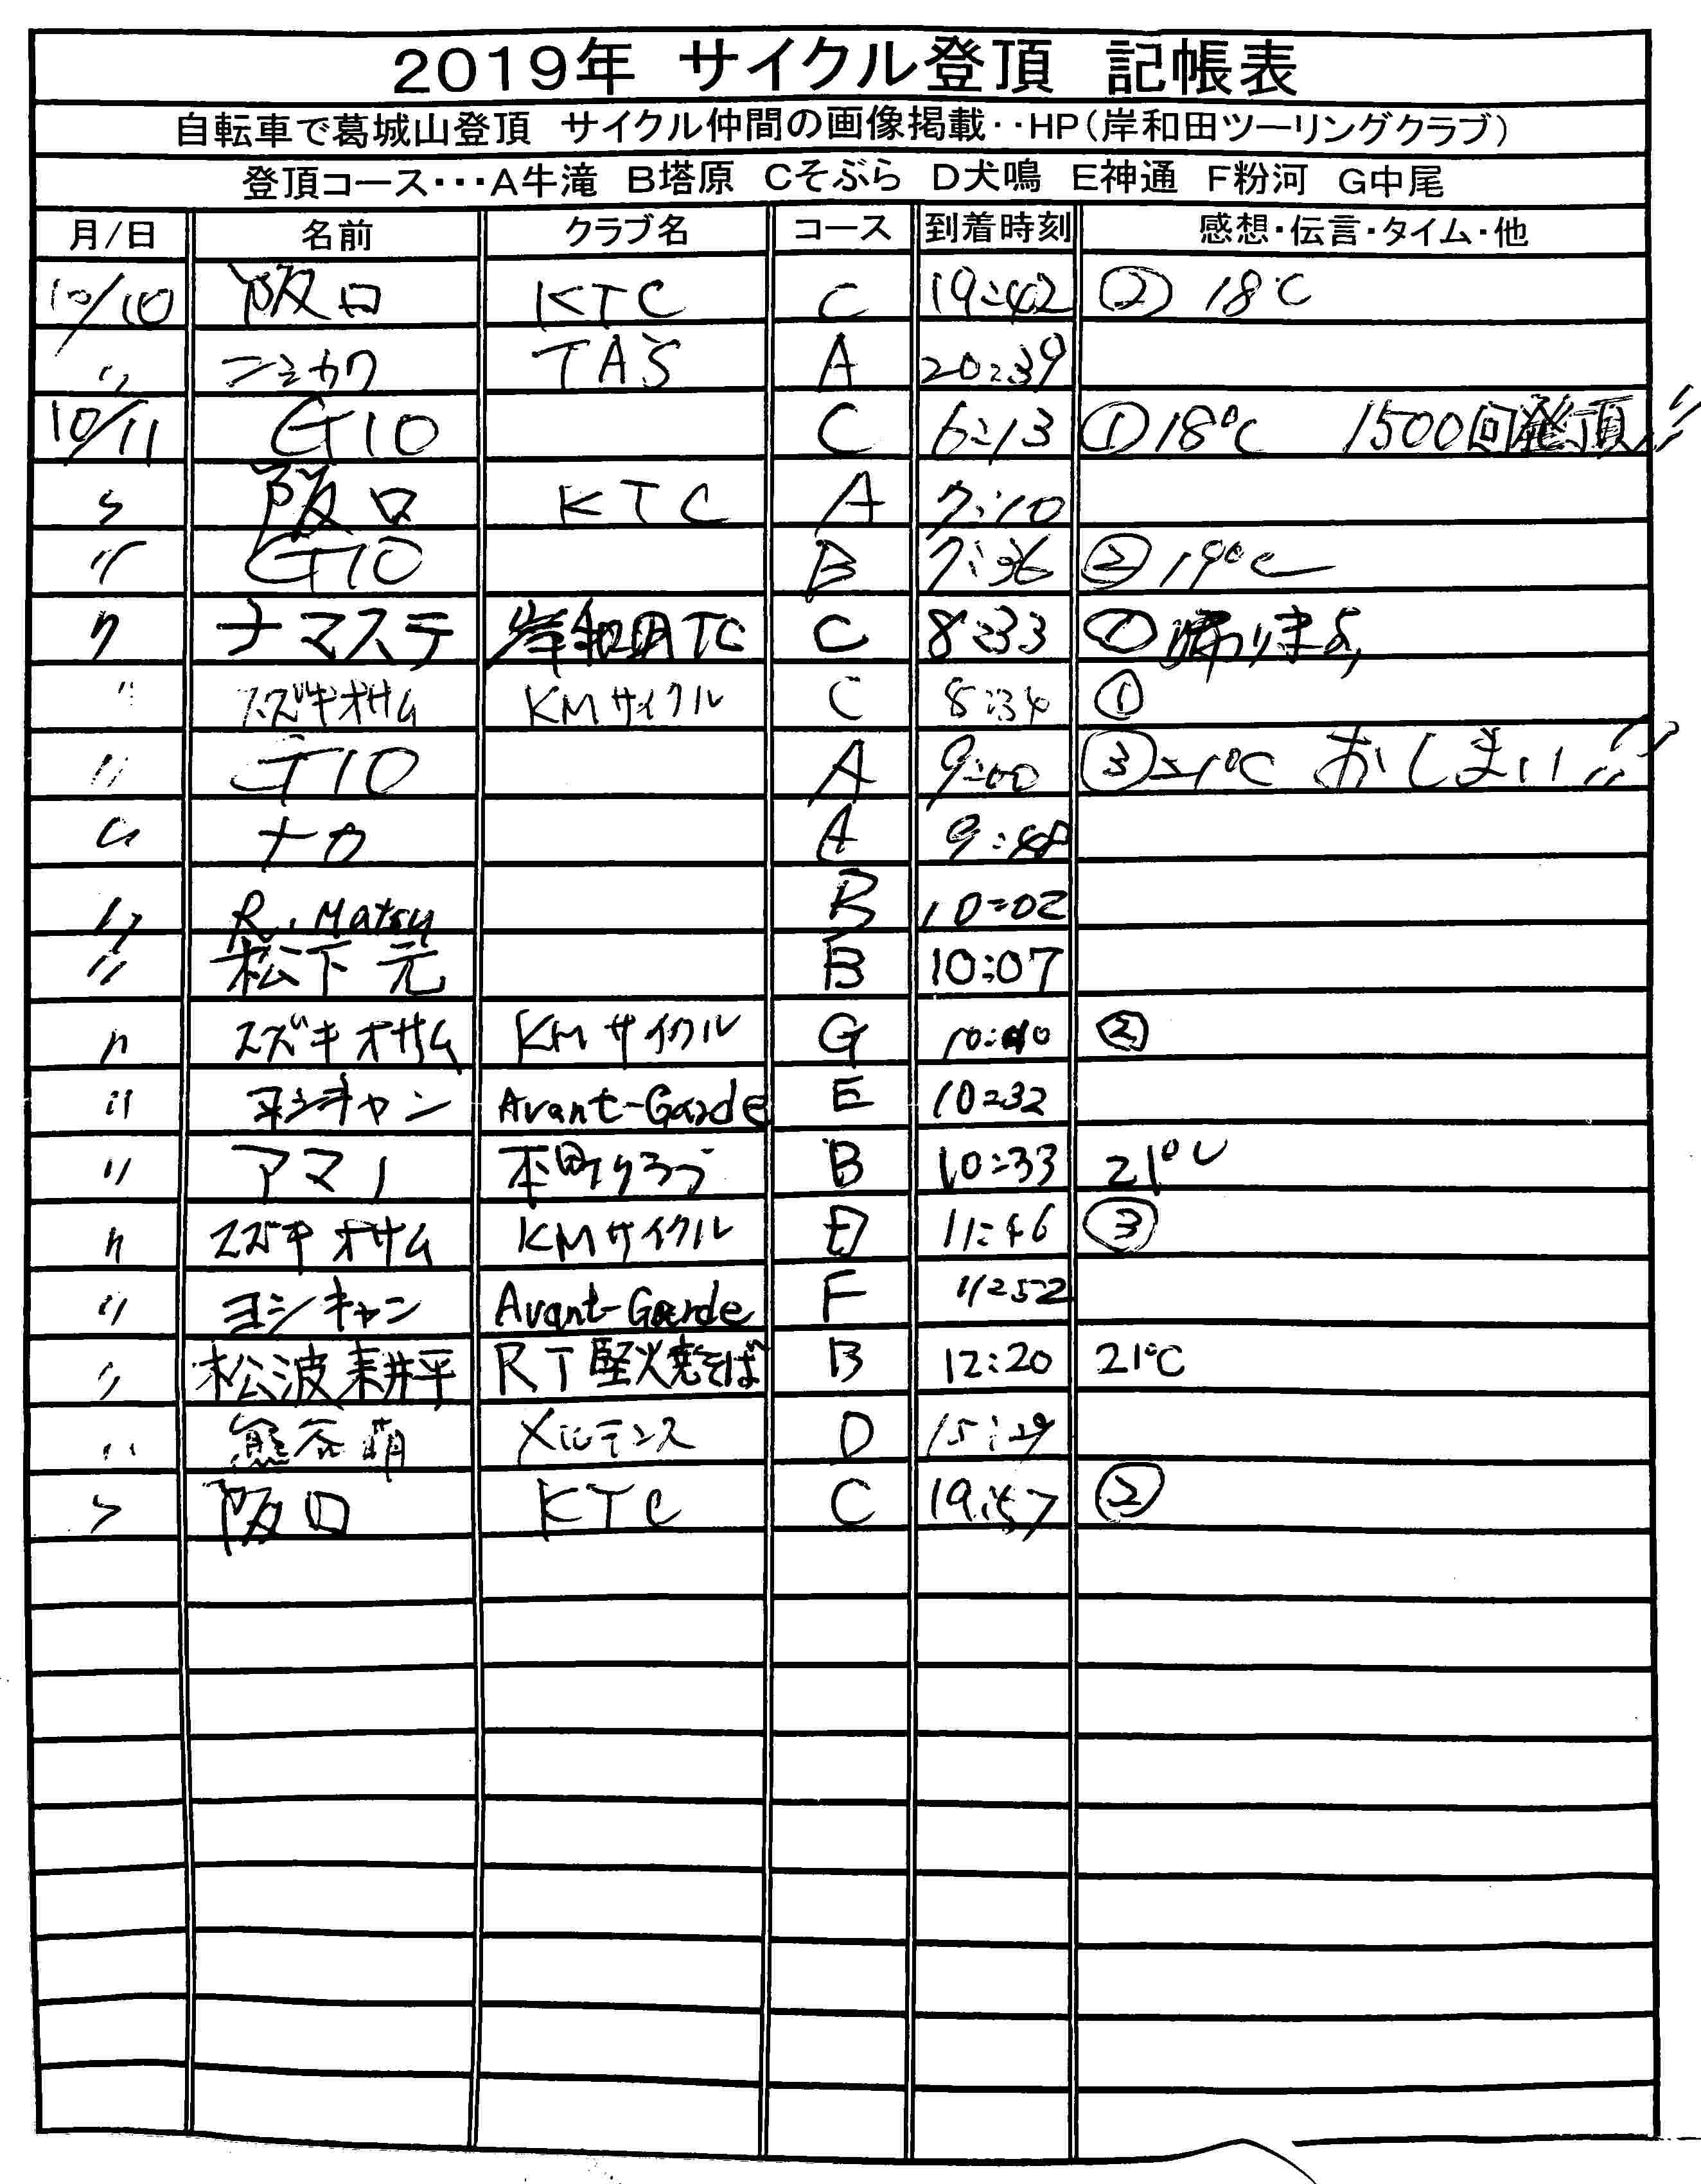 2019年 サイクル登頂 記帳表
自転車で葛城山登頂 サイクル仲間の画像掲載‥HP(岸和田ツーリングクラブ)
登頂コース・・・A牛滝 B塔原 Cそぶら D犬鳴 E神通 F粉河 G中尾
月/日 名前 クラブ名 コース 到着時刻 感想・伝言・タイム・他
10/10 阪口 KTC C 19:42 ② 18℃
〃 ニシカワ TAS A 20:39
10/11 GIO C 6:13 ① 18℃ 1500回登頂!!
〃 阪口 KTC A 7:10
〃 GIO B 7:36 ② 19℃
〃 ナマステ 岸和田TC C 8:33 ① 帰りまっ
〃 スズキオサム KMサイクル C 8:34 ①
〃 GIO A 9:00 ③ 21℃ おしまい!!
〃 ナカ A 9:48
〃 R.Matsu B 10:02
〃 松下 元 B 10:07
〃 スズキオサム KMサイクル G 10:10 ②
〃 ヨシキャン Avant-Garde E 10:32
〃 アマノ 本町クラブ B 10:33 21℃
〃 スズキオサム KMサイクル 11:46 ③
〃 ヨシキャン Avant-Garde F 11:52
〃 松波耕平 RT堅火焼そば B 12:20 21℃
〃 熊谷萌 メルテンス D 15:29
〃 阪口 KTC C 19:57 ②